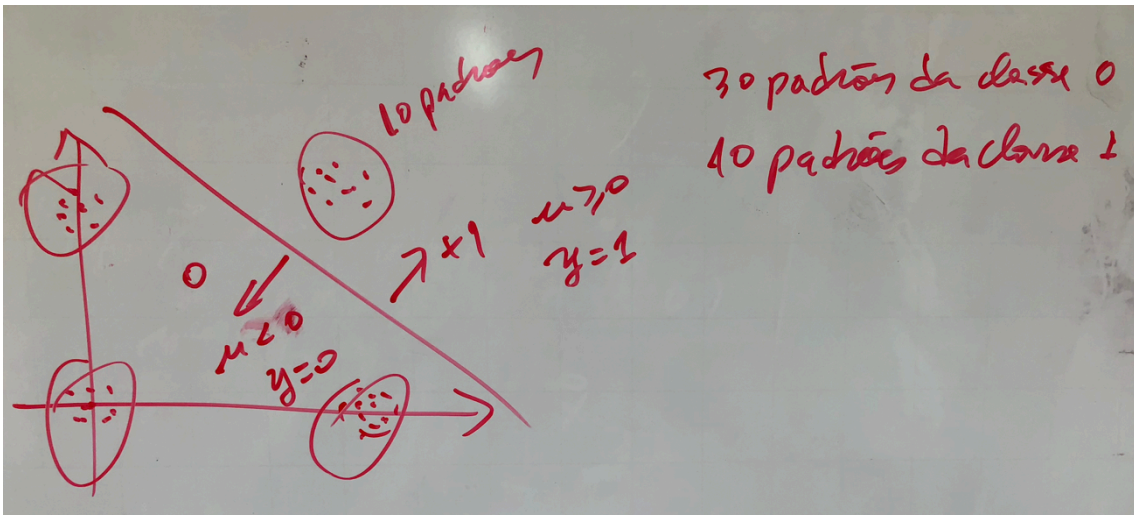 10 padrões
30 padrões da classe 0
10 padrões da classe 1
0
u<0
y=0
+1
u≥0
y=1